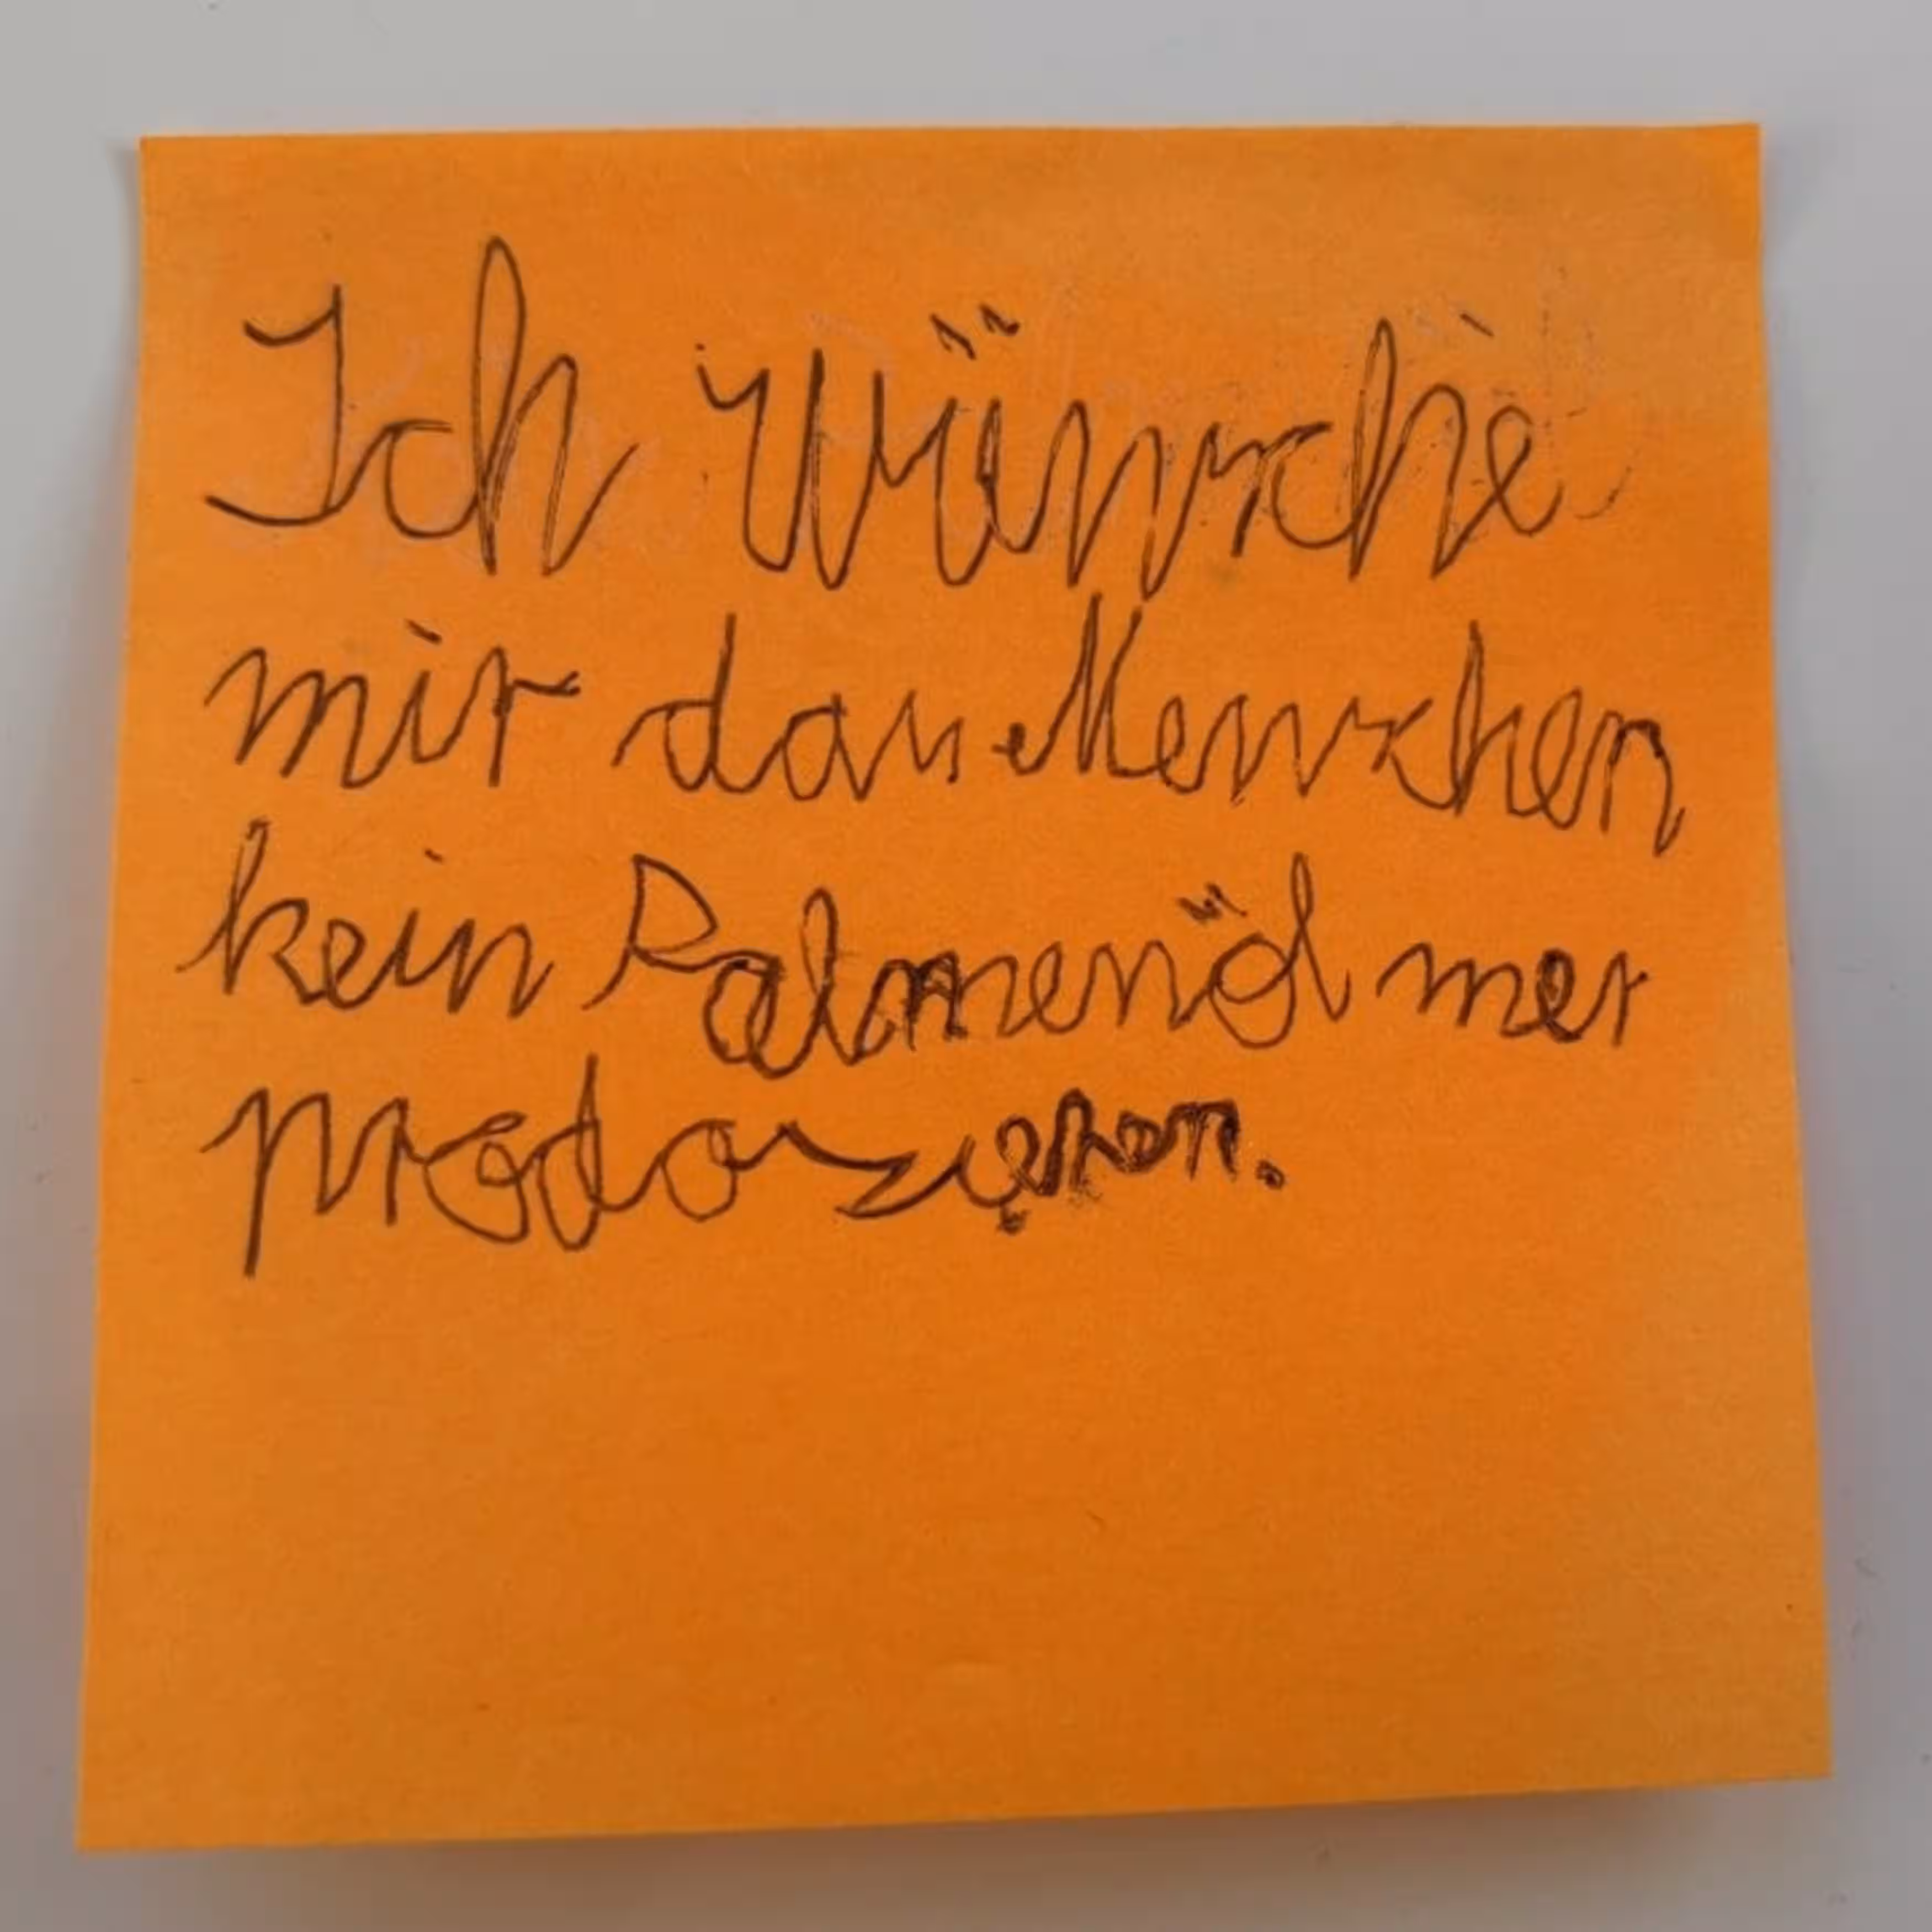 Ich Wünsche
mir dass Menschen
kein Palmenöl mer
prodozieren.